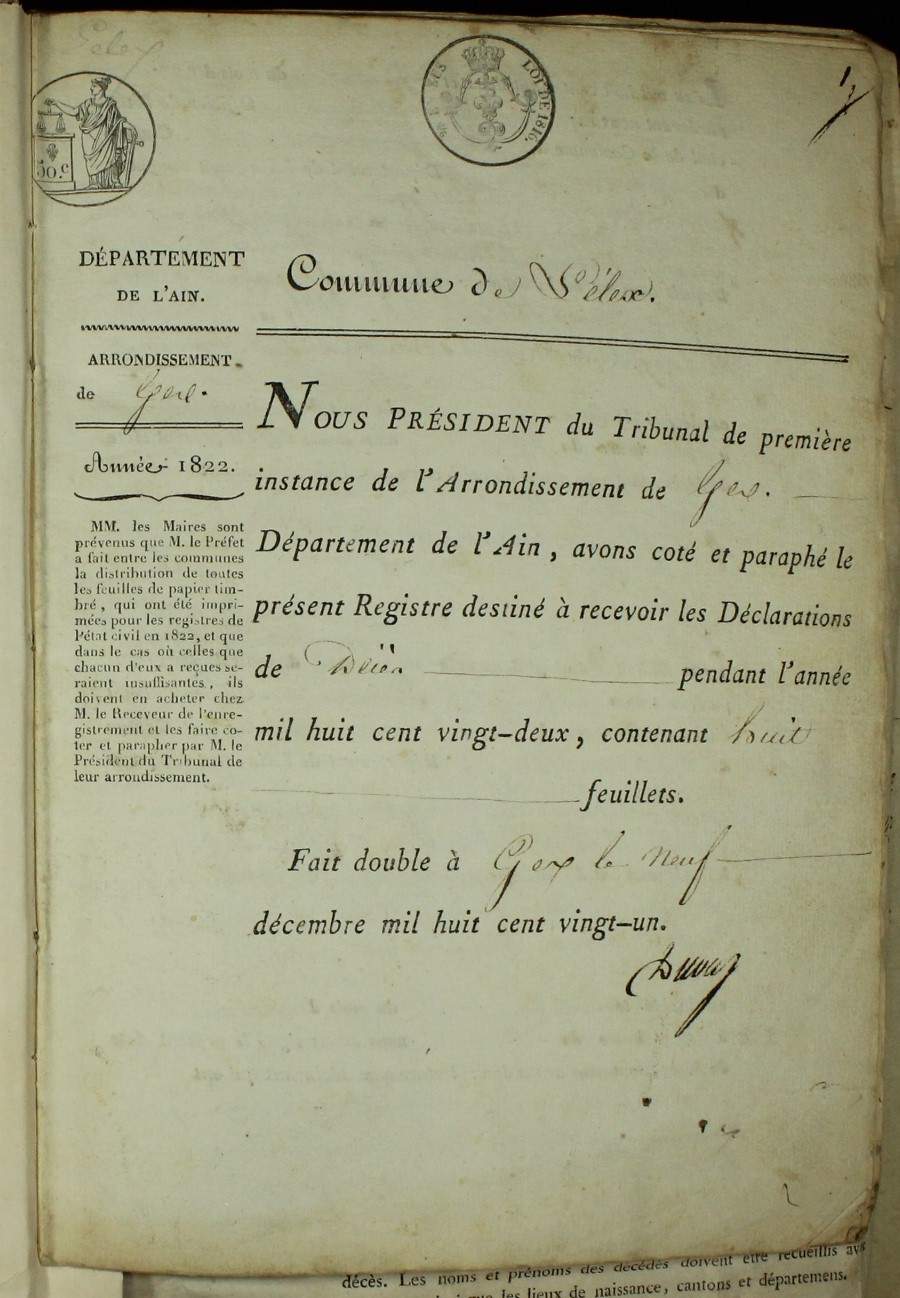 Pelex
50.C
EN SUS
LOI DE 1816.
1
DÉPARTEMENT
DE L'AIN.
ARRONDISSEMENT
de Gex.
Année 1822.
MM. les Maires sont
prévenus que M. le Préfet
a fait entre les communes
la distribution de toutes
les feuilles de papier tim-
bré, qui ont été impri-
mées pour les registres de
l'état civil en 1822, et que
dans le cas où celles que
chacun d'eux a reçues se-
raient insuffisantes, ils
doivent en acheter chez
M. le Receveur de l'enre-
gistrement et les faire co-
ter et parapher par M. le
Président du Tribunal de
leur arrondissement.
Commune de Lélex.
NOUS PRÉSIDENT du Tribunal de première
instance de l'Arrondissement de Gex.
Département de l'Ain, avons coté et paraphé le
présent Registre destiné à recevoir les Déclarations
de Décès pendant l'année
mil huit cent vingt-deux, contenant huit
feuillets.
Fait double à Gex le neuf
décembre mil huit cent vingt-un.
décès. Les noms et prénoms des décédés doivent être recueillis
les lieux de naissance, cantons et départemens.